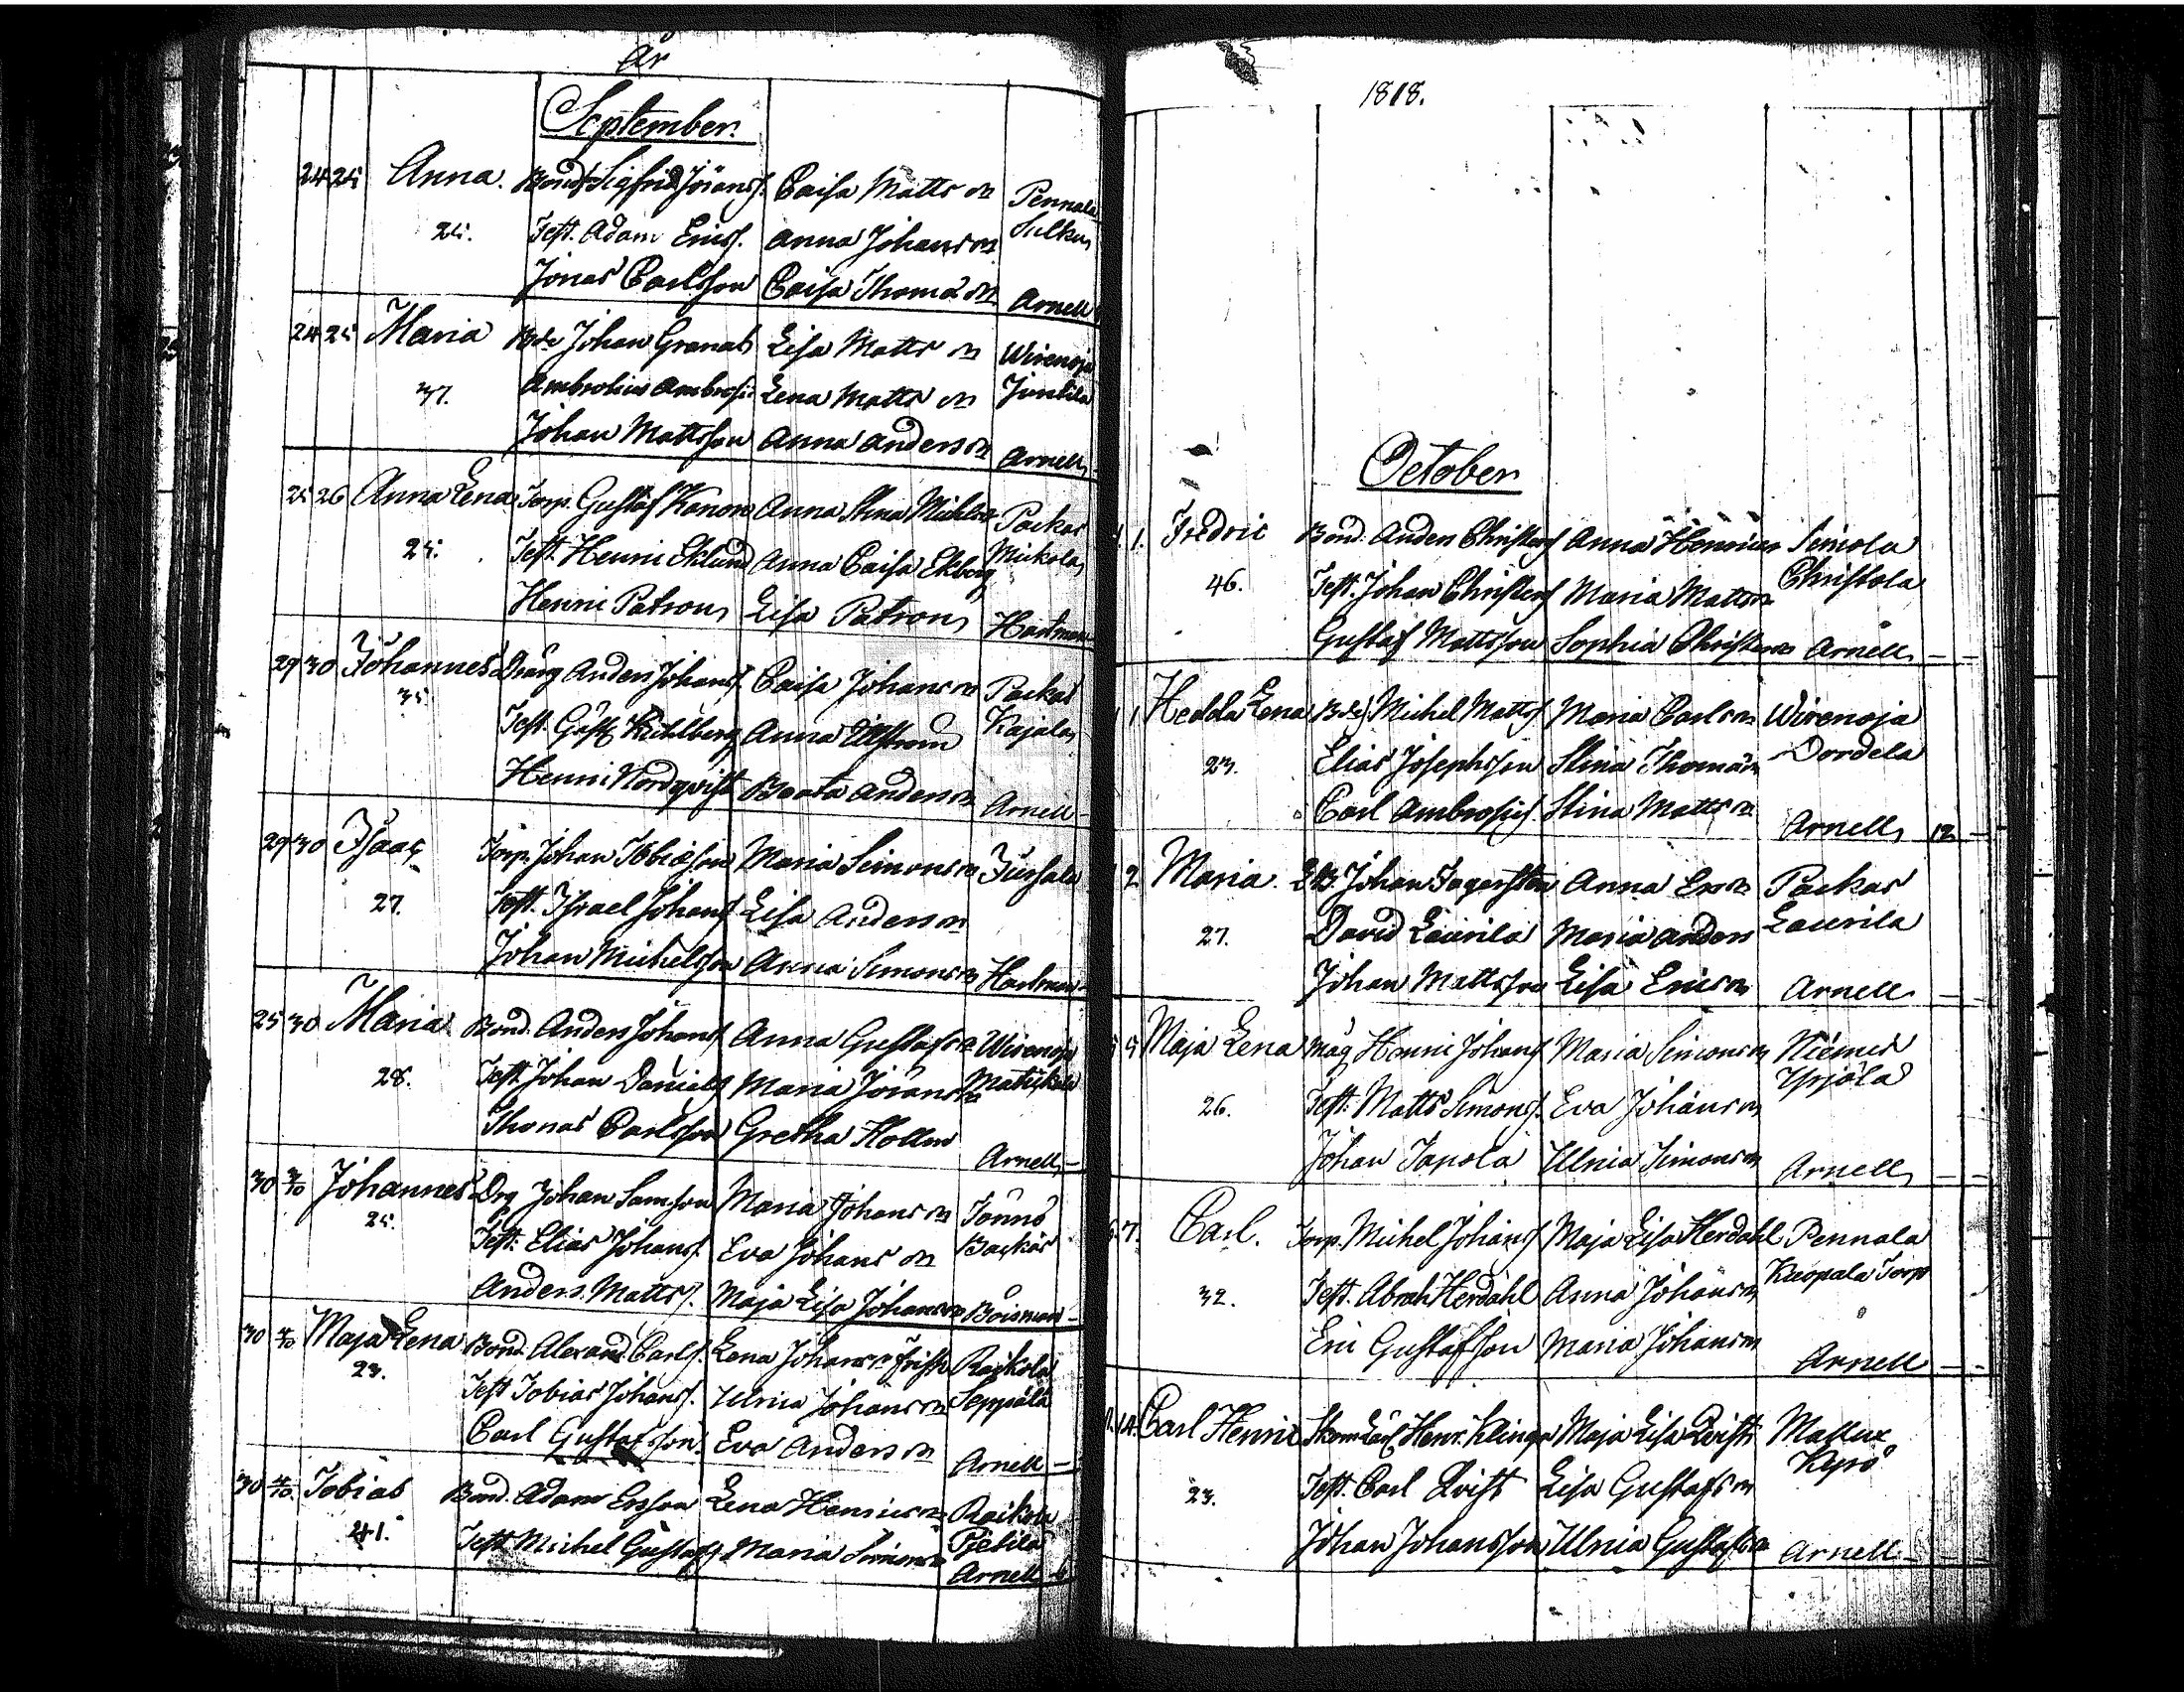 År
September.
24 25 Anna. Bond Sigfrid Jöransf. Caisa Matts dr Pennala
25. Test. Adam Ericss. Anna Johans dr Sulku
Jonas Carlsson Caisa Thomæ dr Arnell
24 25 Maria Bde Johan Granat Lisa Matts dr Wirenoja
37. Ambrosius Ambrosis Lena Matts dr Juntila
Johan Mattsson Anna Anders dr Arnell
25 26 Anna Lena Torp. Gustaf Kanon Anna Stina Michls Packas
25. Test. Henric Eklund Anna Caisa Ekberg Mickola
Henric Patron Lisa Patron
29 30 Johannes Dräng Anders Johans. Caisa Johans dr Packas
35. Test. Gust. Anna Kajala
Henric Nordqvist Beata Anders dr Arnell
29 30 Isaac Torp. Johan Tobiæson Maria Simons dr
27. Test. Israel Johans Lisa Anders dr
Johan Michelsson Anna Simons dr
25 30 Maria Bond. Anders Johans Anna Gustafs dr Wirenoja
28. Test. Johan Daniels Maria Jörans dr
Thomas Carlsson Gretha Arnell
30 2/10 Johannes Drg Johan Samson Maria Johans dr
25. Test. Elias Johans. Eva Johans dr
Anders Matts. Maja Lisa Johans dr Boisman
30 4/10 Maja Lena Bond. Alexand. Carls. Lena Johans dr Raikola
23. Test Tobias Johans. Ulrica Johans dr Seppälä
Carl Gustafsson. Eva Anders dr Arnell
30 4/10 Tobias Bond. Adam Ersson Lena Henrics dr Raikola
41. Test Michel Gustafs Maria Simons dr
Arnell
1818.
October
1. Fredric Bond. Anders Christers Anna Henrics Simola
46. Test. Johan Christers Maria Matts dr Christola
Gustaf Mattsson Sophia Christers Arnell
1 Hedda Lena Bde Michel Matts Maria Carls dr Wirenoja
23. Elias Josephsson Stina Thomæ Dordela
Carl Ambrosius. Stina Matts dr Arnell 12
2 Maria. Johan Fagerström Anna Ers dr Packas
27. David Laurila Maria Anders Laurila
Johan Mattsson Lisa Erics dr Arnell
5 Maja Lena Måg Henric Johans Maria Simons dr Niemis
26. Test. Matts Simonss. Eva Johans dr Yrjölä
Johan Tapola Ulrica Simons dr Arnell
7. Carl. Torp. Michel Johans Maja Lisa Herdahl Pennala
32. Test. Abrah Herdahl Anna Johans dr Kuopala Torp
Eric Gustafsson Maria Johans dr Arnell
14. Carl Henric Henr. Maja Lisa Qvist
23. Test. Carl Qvist Lisa Gustafs dr
Johan Johansson Ulrica Gustafs dr Arnell